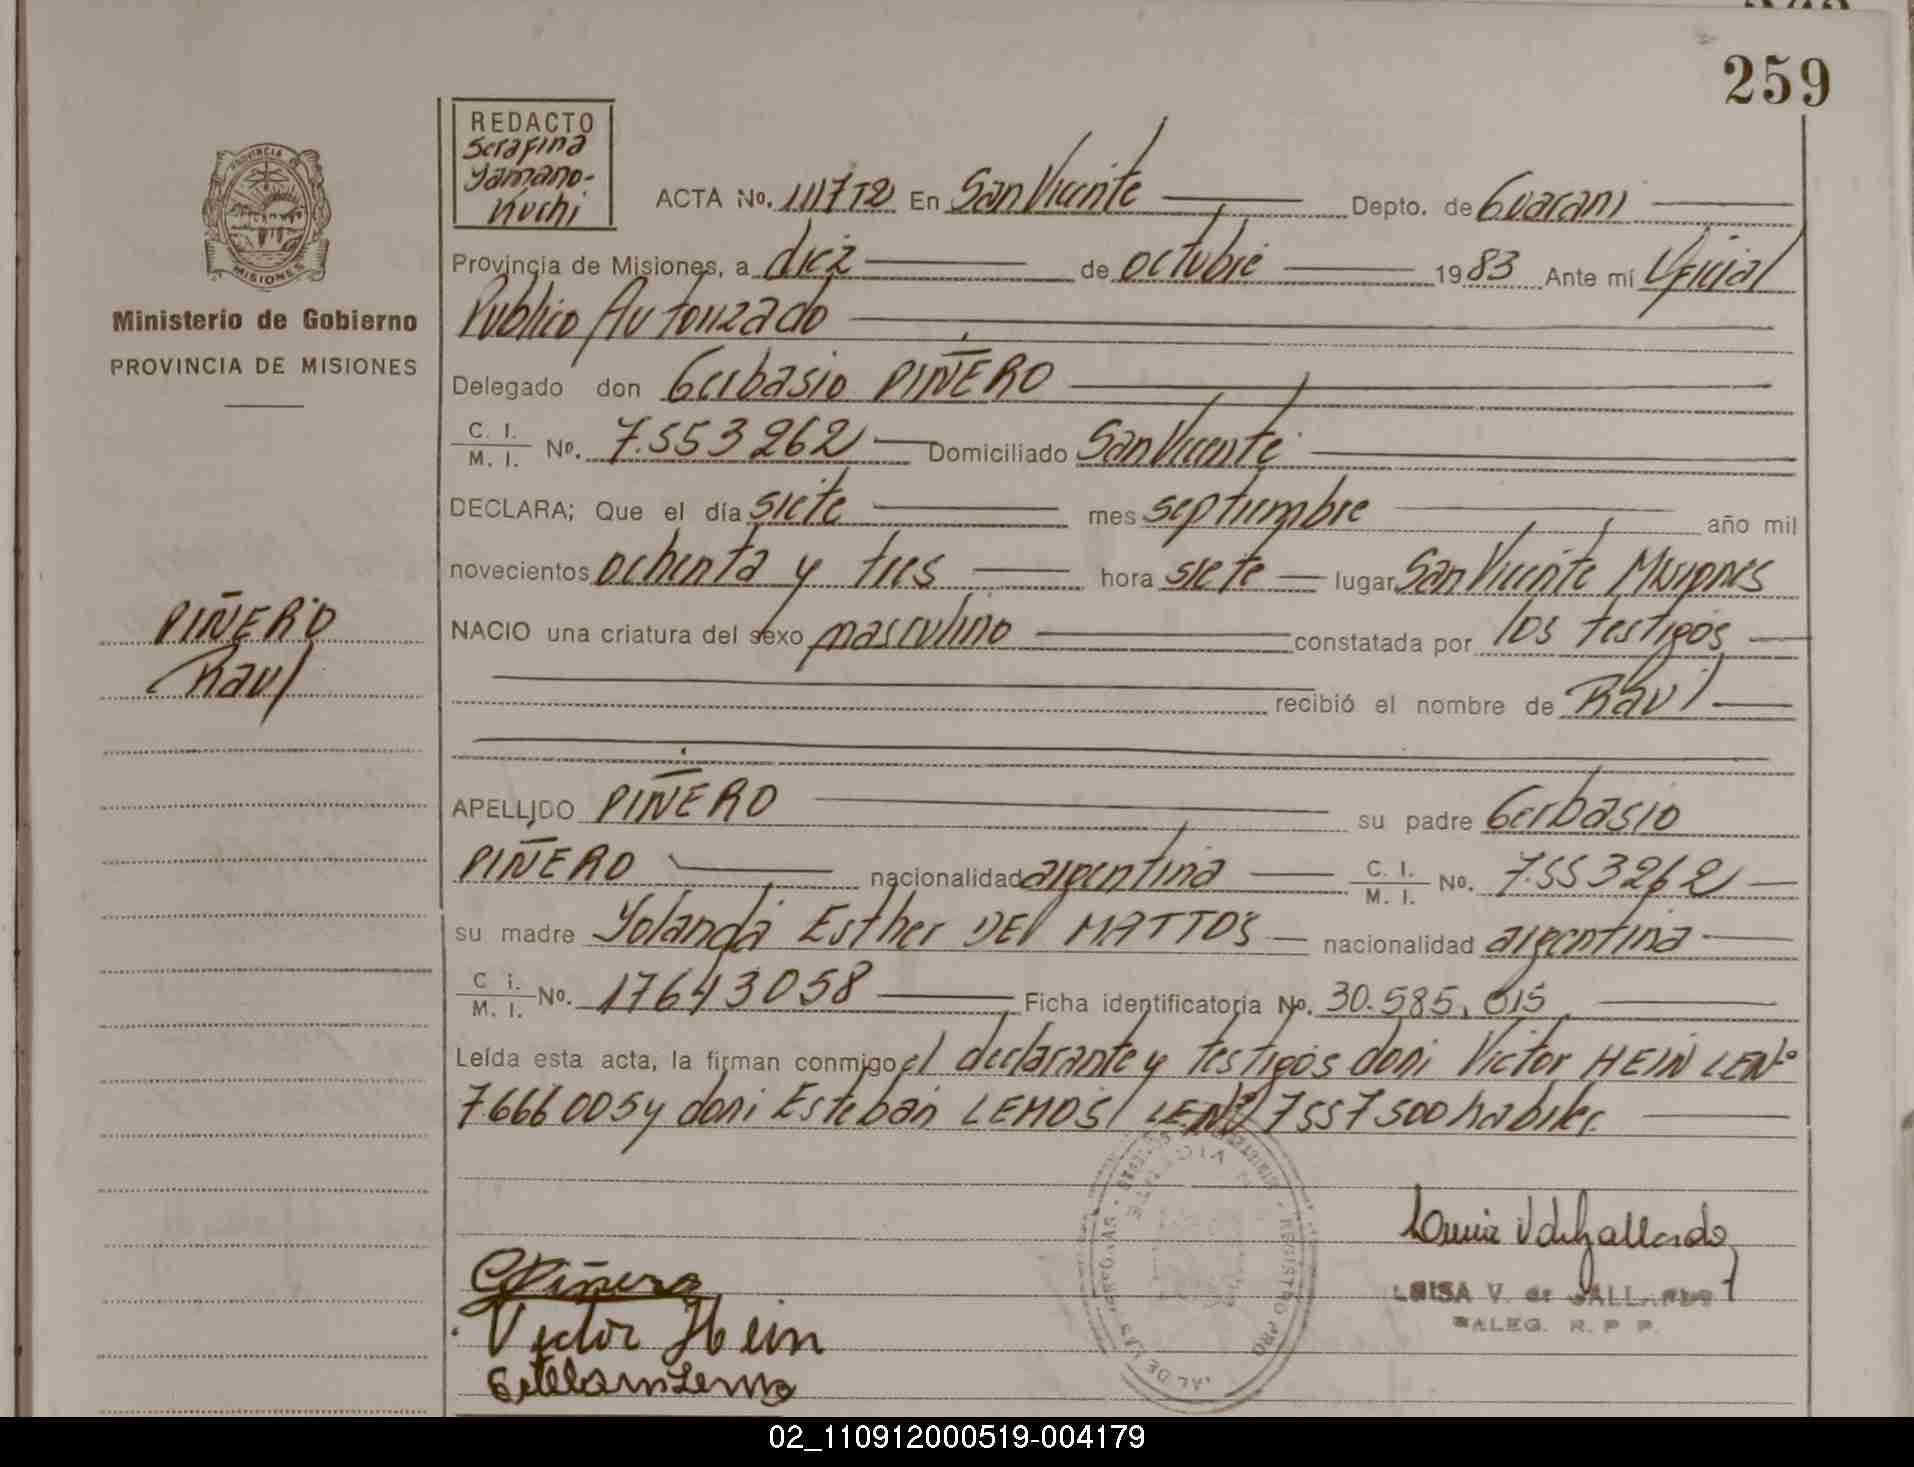 259
REDACTO
Serafina
Yamano-
Kuchi
ACTA No. 111772 En San Vicente Depto. de Guarani
Provincia de Misiones, a diez de octubre 1983 Ante mí Oficial
Publico Autorizado
Delegado don Gerbasio PIÑERO
C. I. / M. I. No. 7.553262 Domiciliado San Vicente
DECLARA; Que el día siete mes septiembre año mil
novecientos ochenta y tres hora siete lugar San Vicente Misiones
NACIO una criatura del sexo masculino constatada por los testigos
recibió el nombre de Raul
APELLIDO PIÑERO su padre Gerbasio
PIÑERO nacionalidad argentina C. I. / M. I. No. 7.553262
su madre Yolanda Esther DE MATTOS nacionalidad argentina
C. I. / M. I. No. 17643058 Ficha identificatoria No. 30.585.015
Leída esta acta, la firman conmigo el declarante y testigos don: Victor HEIN LENº
7666005 y don: Esteban LEMOS LENº 7557500 habiles.
PROVINCIA DE
MISIONES
Ministerio de Gobierno
PROVINCIA DE MISIONES
PIÑERO
Raul
GPiñero
Victor Hein
Esteban Lemo
LUISA V. de GALLARDO
R. P. P.
REGISTRO PRO
02_110912000519-004179